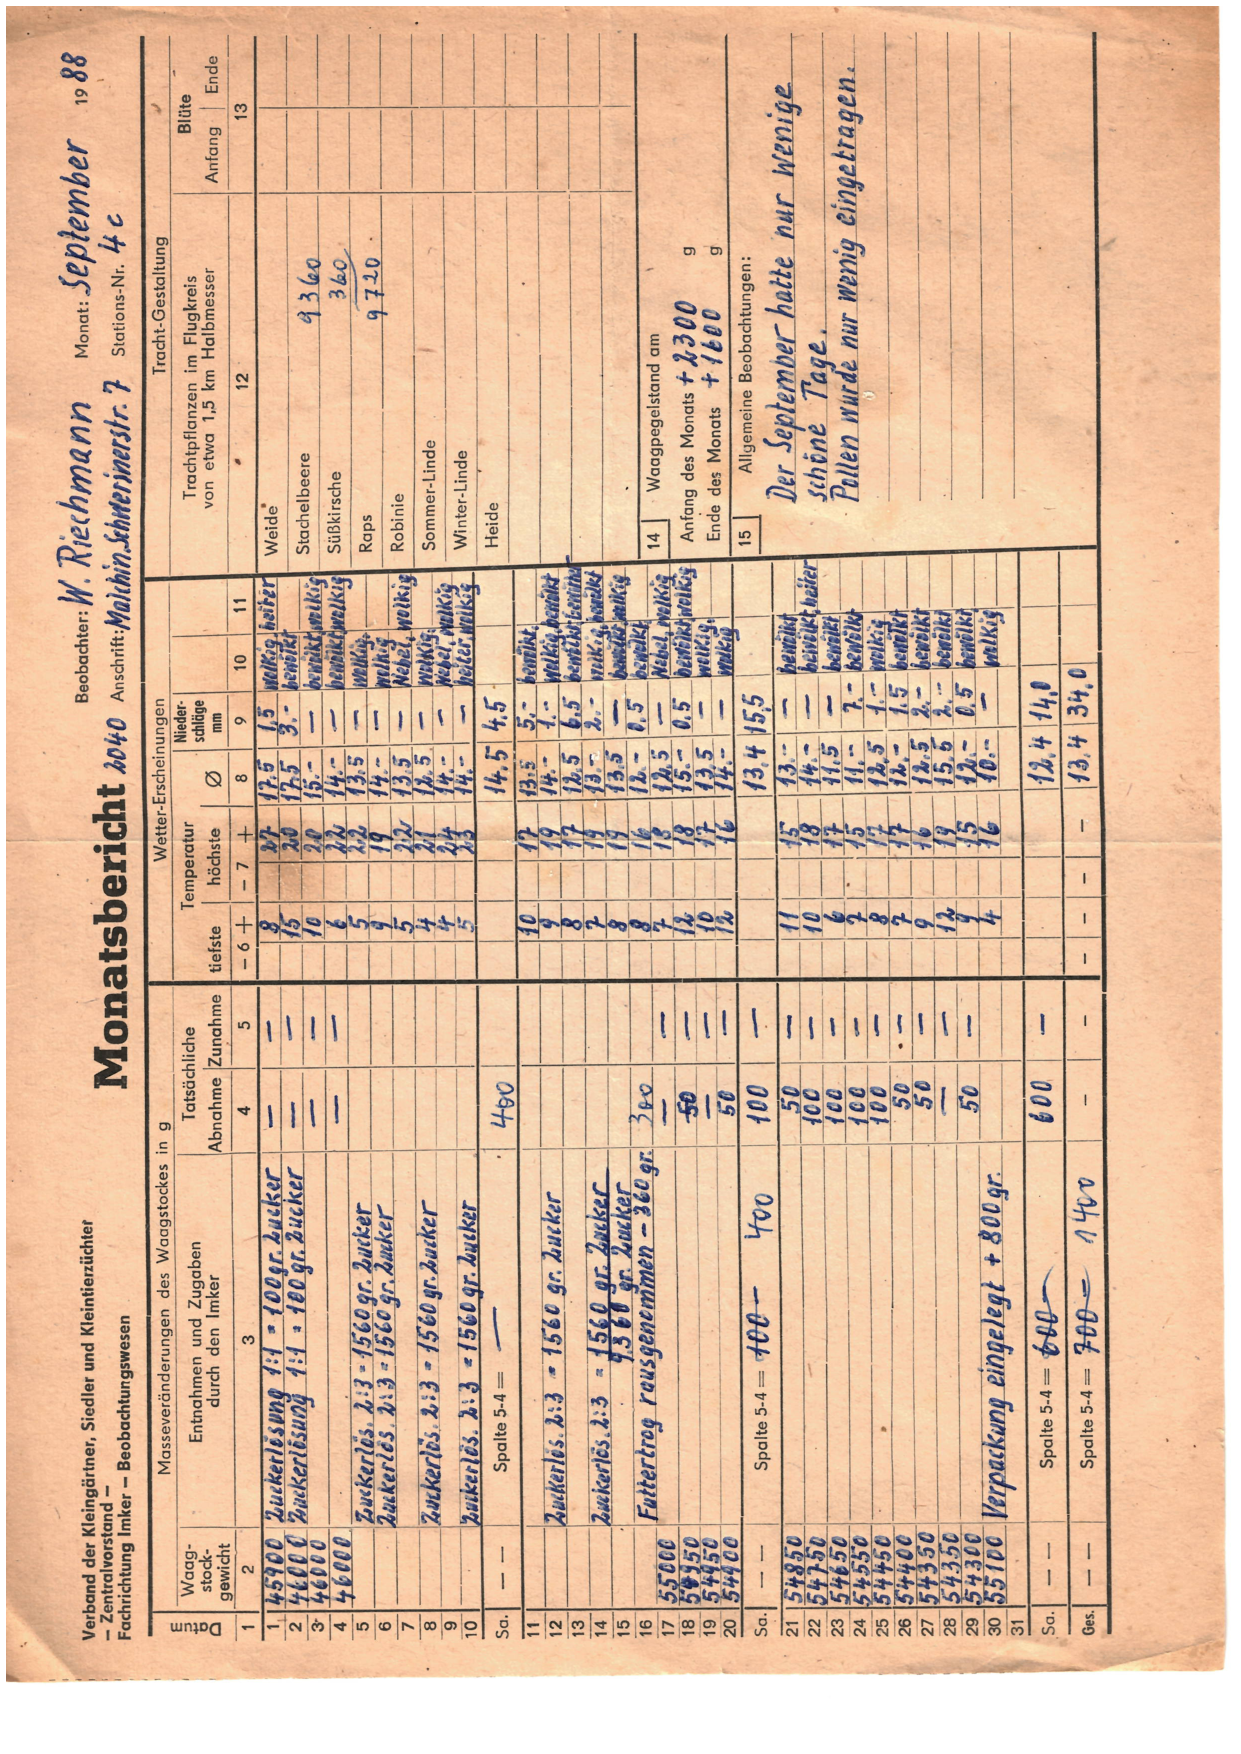 Verband der Kleingärtner, Siedler und Kleintierzüchter
– Zentralvorstand –
Fachrichtung Imker – Beobachtungswesen
Monatsbericht
Beobachter: W. Riechmann Monat: September 1988
2040 Anschrift: Malchin. Schwerinerstr. 7 Stations-Nr. 4c
Masseveränderungen des Waagstockes in g
Wetter-Erscheinungen
Tracht-Gestaltung
Datum
Waag-
stock-
gewicht
Entnahmen und Zugaben
durch den Imker
Tatsächliche
Abnahme Zunahme
Temperatur
tiefste höchste Ø
Nieder-
schläge
mm
Trachtpflanzen im Flugkreis
von etwa 1,5 km Halbmesser
Blüte
Anfang Ende
1 2 3 4 5 – 6 + – 7 + 8 9 10 11 12 13
1 45900 Zuckerlösung 1:1 = 100gr. Zucker — — 8 27 17.5 1,5 wolkig heiter
2 46000 Zuckerlösung 1:1 = 100 gr. Zucker — — 15 20 17.5 3.- bewölkt
3 46000 — — 10 20 15.- — bewölkt wolkig
4 46000 — — 6 22 14.- — bewölkt wolkig
5 Zuckerlös. 2:3 = 1560gr. Zucker 5 22 13.5 — wolkig
6 Zuckerlös. 2:3 = 1560gr. Zucker 9 19 14.- — wolkig
7 5 22 13.5 — Nebel, wolkig
8 Zuckerlös. 2:3 = 1560gr. Zucker 4 21 12.5 — wolkig
9 4 24 14.- — Nebel, wolkig
10 Zuckerlös. 2:3 = 1560gr. Zucker 5 23 14.- — heiter wolkig
Sa. — — Spalte 5-4 = — 400 14.5 4.5
11 10 17 13.5 5.- bewölkt
12 Zuckerlös. 2:3 = 1560 gr. Zucker 9 19 14.- 1.- wolkig bewölkt
13 8 17 12.5 6.5 bewölkt
14 Zuckerlös. 2:3 = 1560 gr. Zucker 7 19 13.- 2.- wolkig bewölkt
15 9360 gr. Zucker 8 19 13.5 — bewölkt wolkig
16 Futtertrog rausgenommen – 360gr. 300 8 16 12.- 0.5 bewölkt
17 55000 — — 7 18 12.5 — Nebel, wolkig
18 54950 50 — 12 18 15.- 0.5 bewölkt wolkig
19 54950 — — 10 17 13.5 — wolkig
20 54900 50 — 12 16 14.- — wolkig
Sa. — — Spalte 5-4 = 100 – 400 100 — 13.4 15,5
21 54850 50 — 11 15 13.- — bewölkt
22 54750 100 — 10 18 14.- — bewölkt, heiter
23 54650 100 — 6 17 11.5 — bewölkt
24 54550 100 — 7 15 11.- 7.- bewölkt
25 54450 100 — 8 17 12,5 1.- wolkig
26 54400 50 — 7 17 12.- 1.5 bewölkt
27 54350 50 — 9 16 12.5 2.- bewölkt
28 54350 — — 12 19 15.5 2.- bewölkt
29 54300 50 — 9 15 12.- 0.5 bewölkt
30 55100 Verpackung eingelegt + 800gr. 4 16 10.- — wolkig
31
Sa. — — Spalte 5-4 = 600 – 600 — 12.4 14,0
Ges. — — Spalte 5-4 = 700 = 1400 – – – – – 13.4 34,0
Weide
Stachelbeere 9360
Süßkirsche 360
Raps 9720
Robinie
Sommer-Linde
Winter-Linde
Heide
14 Waagpegelstand am
Anfang des Monats + 2300 g
Ende des Monats + 1600 g
15 Allgemeine Beobachtungen:
Der September hatte nur wenige
schöne Tage.
Pollen wurde nur wenig eingetragen.